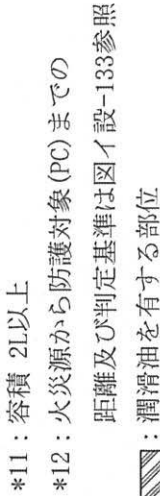 *11：容積 2L以上
*12：火災源から防護対象(PC)までの
距離及び判定基準は図イ設-133参照
：潤滑油を有する部位